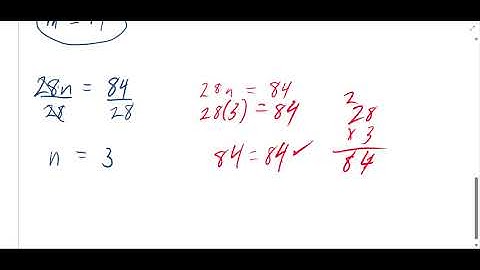 28n = 84
28 28
n = 3
28n = 84
28(3) = 84
84 = 84 ✓
2
28
x 3
84